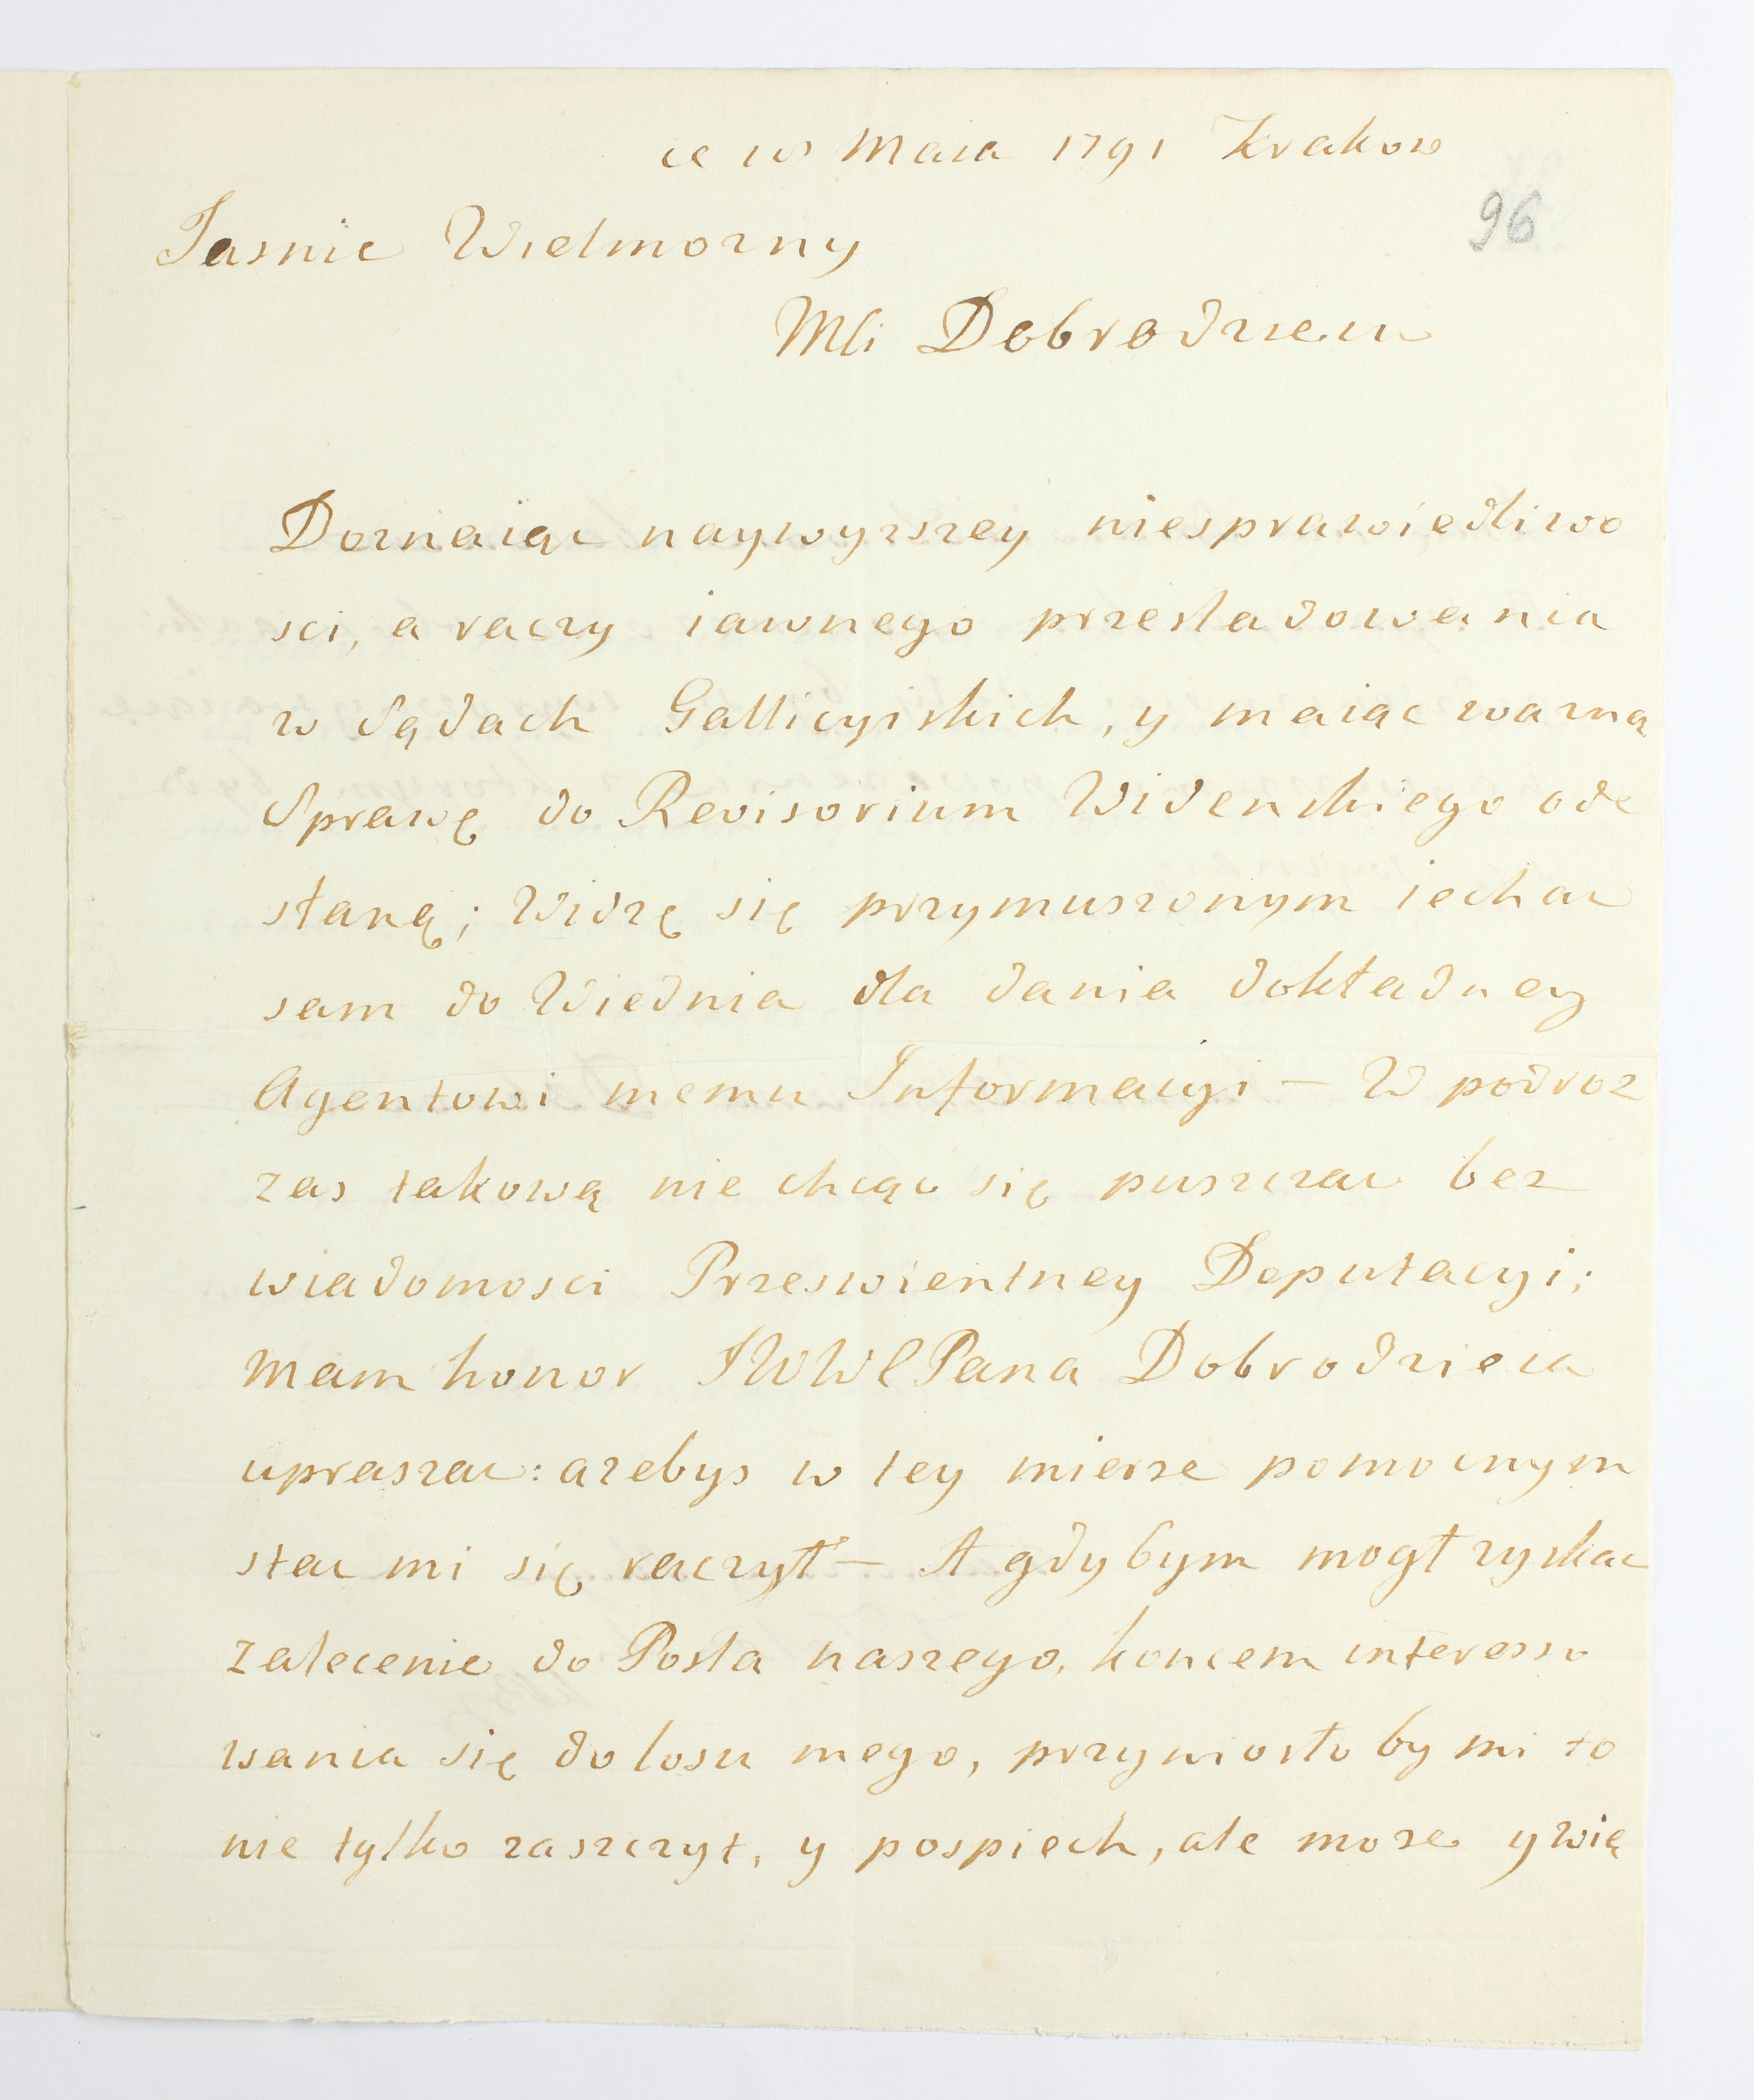 Maia 1791 Krakow
96
Jasnie Wielmozny
Mci Dobrodzieiu
Doznaiąc naywyzszey niesprawiedliwo
sci, a raczy iawnego przesladowania
w Sądach Gallicyiskich, y maiąc wazną
Sprawę do Revisorium Widenskiego ode
słaną; Widzę się przymuszonym iechac
sam do Wiednia dla dania dokładney
Agentowi memu Informacyi — W podroz
zas takową nie chcąc się puszczac bez
wiadomosci Przeswientney Deputacyi;
mam honor JWWC Pana Dobrodzieia
upraszac: azebys w tey mierze pomocnym
stac mi się raczył — A gdybym mogł zyskac
zalecenie do Posła naszego, koncem interesso
wania się do losu mego, przyniosło by mi to
nie tylko zaszczyt, y pospiech, ale moze y wię